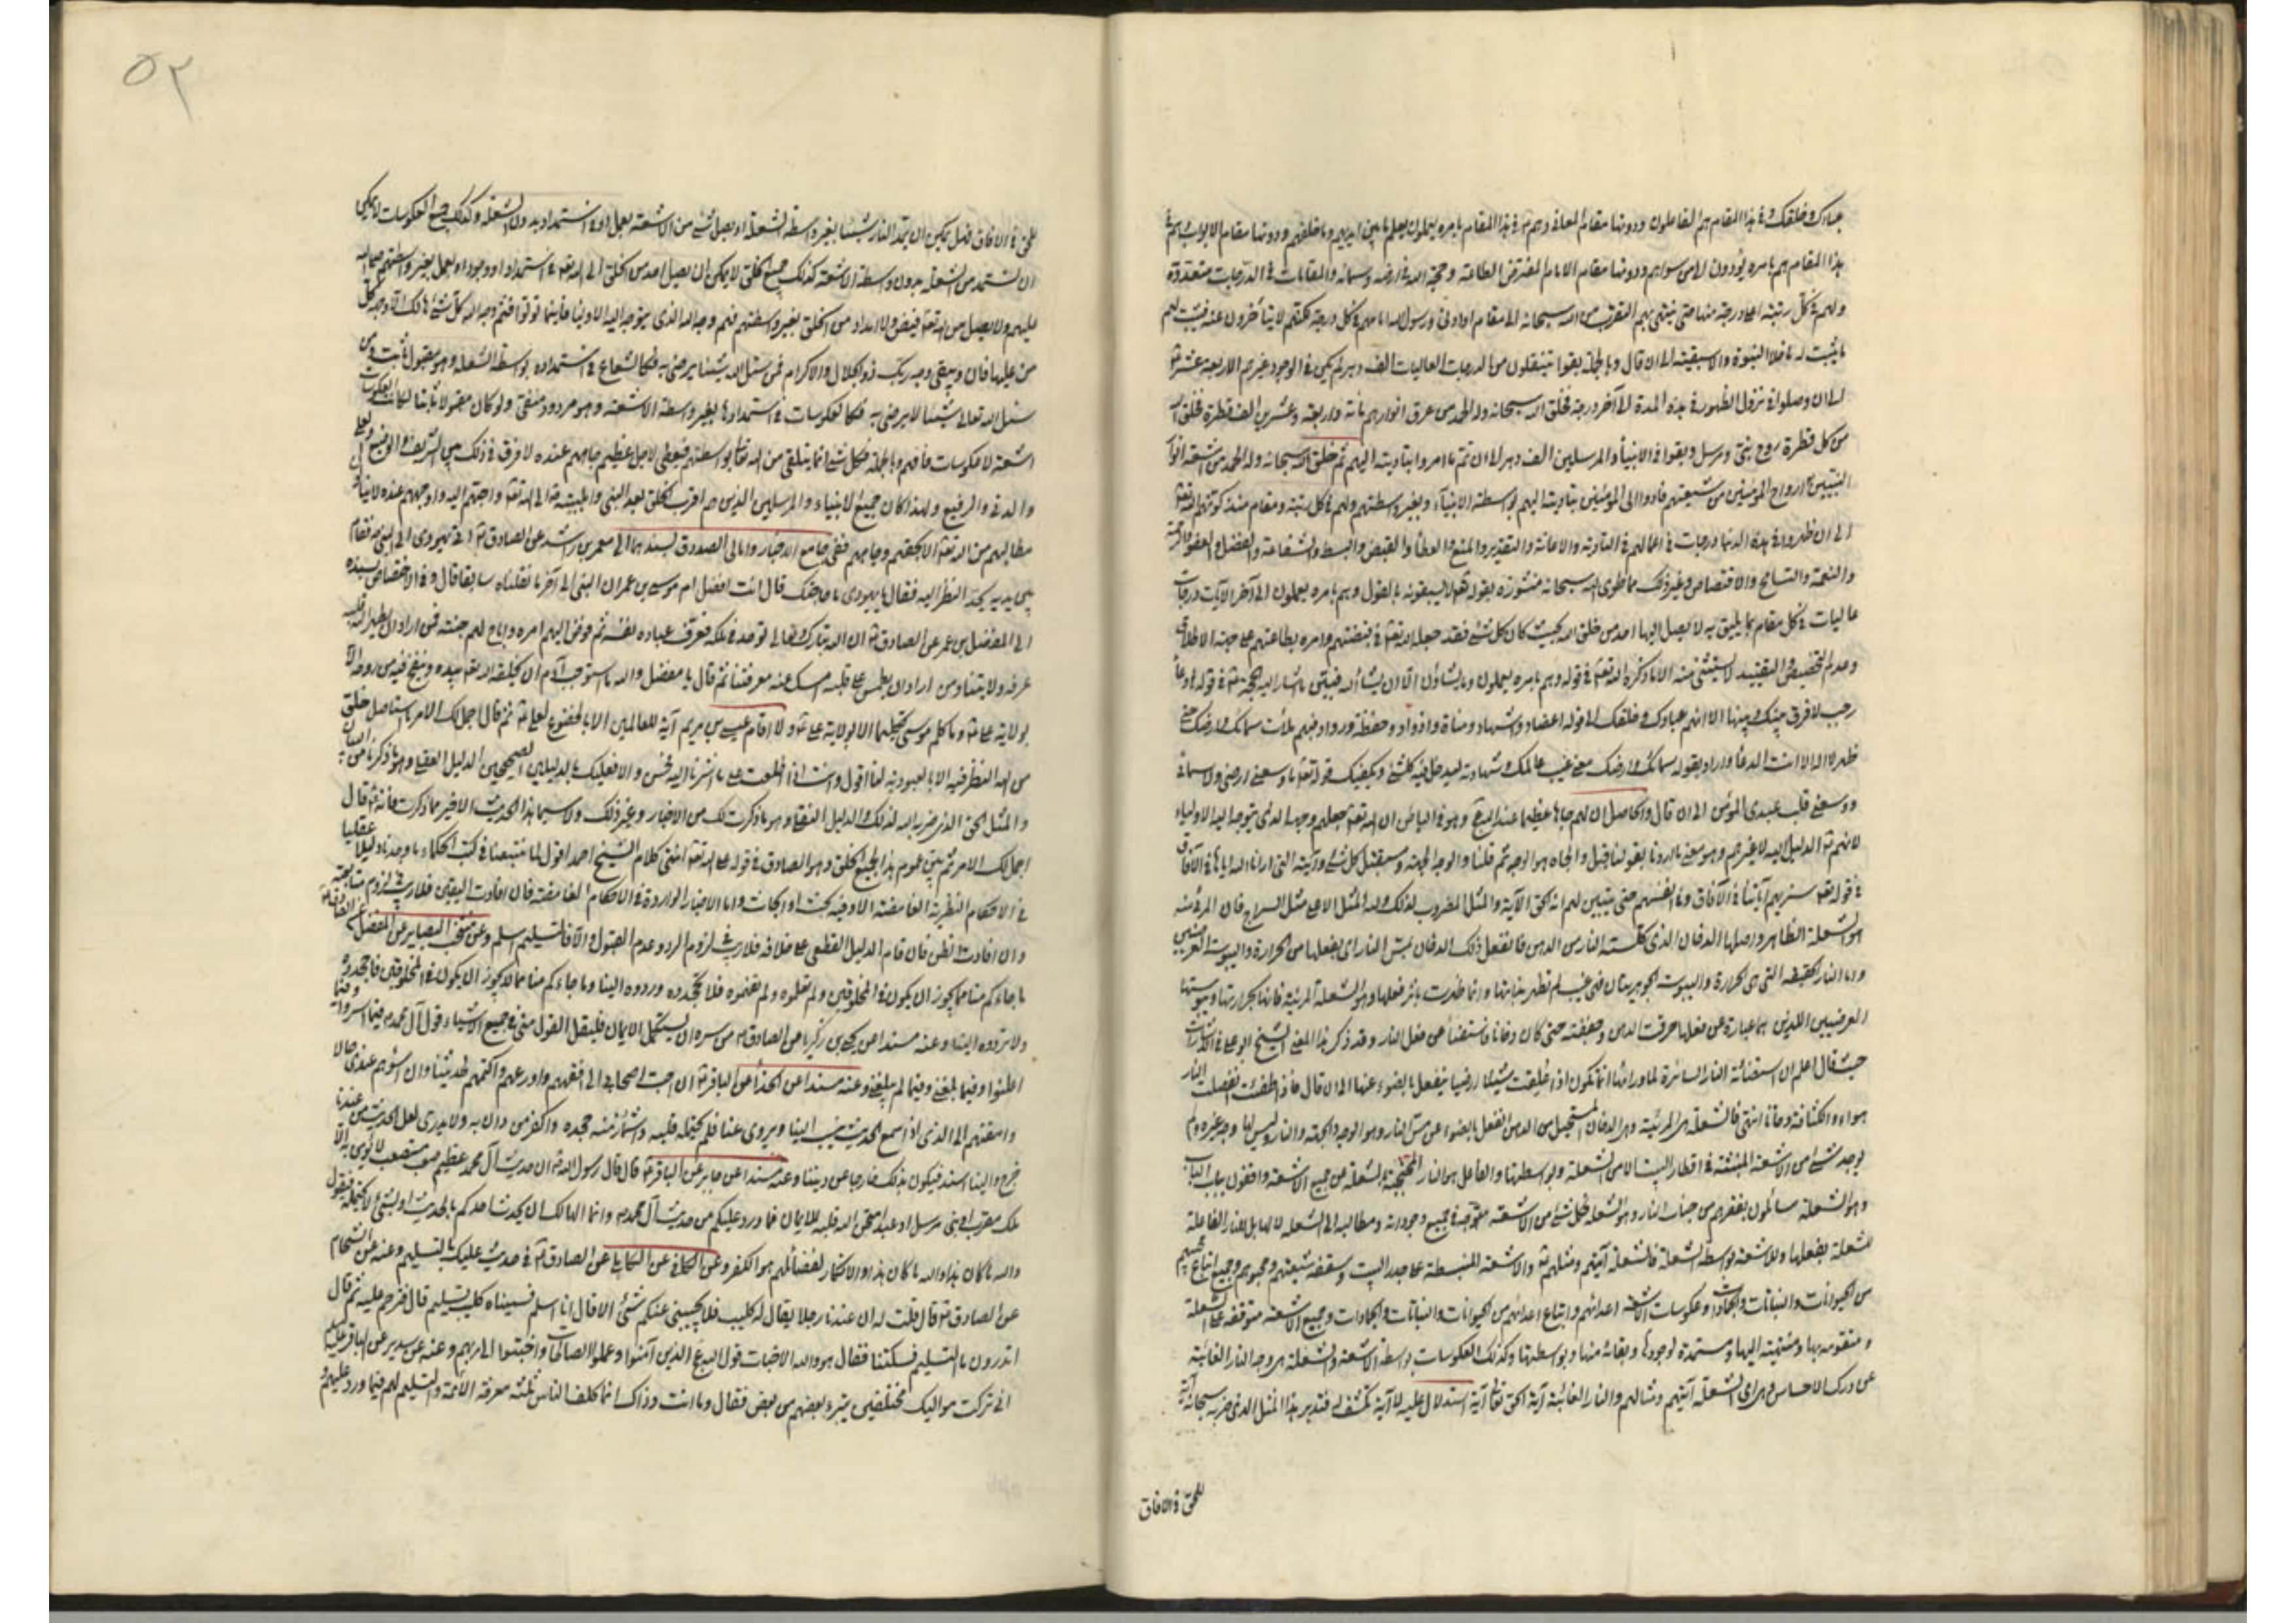 عبادك وخلقك وفي هذا المقام هم الفاعلون ودونها مقام المعاني وهم في هذا المقام بامره يعملون يعلم ما بين ايديهم وما خلفهم ودونها مقام الابواب هم في
هذا المقام هم بامره يؤدون الى من سواهم ودونها مقام الامام المفترض الطاعة وحجة الله في ارضه وسمائه والمقامات في الدرجات متعددة
ولهم في كل رتبة اعلى درجة منها حتى ينتهي بهم التقرب من الله سبحانه الى مقام او ادنى ورسول الله امامهم في كل درجة لكنهم لا يتأخرون عنه فيثبت لهم
ما يثبت له ما خلا النبوة والاسبقية الى ان قال وبالجملة بقوا يتنقلون من الدرجات العاليات الف دهر لم يكن في الوجود غيرهم الاربعة عشر
الى ان وصلوا في نزول الظهور في هذه المدة الى آخر درجة فخلق الله سبحانه وله الحمد من عرق انوارهم مائة واربعة وعشرين الف قطرة فخلق
من كل قطرة روح نبي ومرسل وبقوا في الانبياء والمرسلين الف دهر الى ان تم ما امروا بتأديته اليهم ثم خلق الله سبحانه وله الحمد من اشعة انوار
النبيين ارواح المؤمنين من شيعتهم فادوا الى المؤمنين بتأديته اليهم بواسطة الانبياء وبغير واسطتهم ولهم في كل رتبة ومقام منذ كونهم الله تعالى
الى ان ظهروا في هذه الدنيا درجات في اعمالهم في التأدية والامانة والتقدير والمنع والعطاء والقبض والبسط والشفاعة والفضل والعفو والرحمة
والنعمة والتسامح والاقتصاص وغير ذلك مما طوى الله سبحانه منشوره بقوله تعالى لا يسبقونه بالقول وهم بامره يعملون الى آخر الآيات درجات
عاليات في كل مقام بما يليق به لا يصل اليها احد من خلق الله بحيث كان كل شيء فقد جعله الله تعالى في قبضتهم وامره بطاعتهم على جهة الاطلاق
وعدم التخصيص والتقييد لا يستثنى منه الا ما ذكره الله تعالى في قوله وهم بامره يعملون وما يشاؤن الا ان يشاء الله فيبقى ما اشار اليه الحجة في قوله في دعاء
رجب لا فرق بينك وبينها الا انهم عبادك وخلقك الى قوله اعضاد واشهاد ومناة واذواد وحفظة ورواد فبهم ملأت سمائك وارضك حتى
ظهر لا اله الا انت الدعاء واراد بقوله سمائك وارضك معنى غيب عالمك وشهادته ليدخل فيه كل شيء ويكفيك قوله تعالى ما وسعني ارضي ولا سمائي
ووسعني قلب عبدي المؤمن الى ان قال والحاصل ان لهم جاها عظيما عند الله وهو في الباطن ان الله تعالى جعلهم وجهه الذي يتوجه اليه الاولياء
لانهم الدليل اليه لا غيرهم وهو معنى ما اردنا بقولنا قبل والجاه هو الوجه ثم قلنا والوجه الجهة ومستقبل كل شيء وآيته التي ارانا الله اياها في الآفاق
في قوله تعالى سنريهم آياتنا في الآفاق وفي انفسهم حتى يتبين لهم انه الحق الآية والمثل المضروب لذلك ولله المثل الاعلى مثل السراج فان المرئي منه
هو الشعلة الظاهر واصلها الدخان الذي كلسته النار من الدهن فانفعل ذلك الدخان بمس النار اي بفعلها من الحرارة واليبوسة العرضيين
واما النار الحقيقة التي هي الحرارة واليبوسة الجوهريتان فهي غيب لم تظهر بذاتها وانما ظهرت باثر فعلها وهو الشعلة المرئية فانها بحرارتها ويبوستها
العرضيين اللذين هما عبارة عن فعلها احرقت الدهن وجففته حتى كان دخانا فاستضاء عن فعل النار وقد ذكر هذا المعنى الشيخ ابو علي في الاشارات
حيث قال اعلم ان استضائة النار الساترة لما ورائها انما تكون اذا خلقت شيئا ارضيا ينفعل بالضوء عنها الى ان قال فاذا طفئت انفصلت النار
هواء والكثافة دخانا انتهى فالشعلة هي المرئية وهي الدخان المستحيل من الدهن انفعل بالضوء عن مس النار وهو الوجه والجهة والنار وليس لها وجه غيره ولم
يوجد شيء من الاشعة المنبثة في اقطار البيت الا من الشعلة وبواسطتها والفاعل هو النار المحتجبة بالشعلة عن جميع الاشعة واقفون بباب الباب
وهو الشعلة سائلون بفقرهم من جناب النار وهو الشعلة فكل شيء من الاشعة متوجه في جميع وجوداته ومطالبه الى الشعلة لا لها بل للنار الفاعلة
للشعلة بفعلها وللاشعة بواسطة الشعلة فالشعلة آيتهم ومثلهم والاشعة المنبسطة على جدر البيت وسقفه شيعتهم ومحبوهم وجميع اتباع محبيهم
من الحيوانات والنباتات والجمادات وعكوسات الاشعة اعدائهم واتباع اعدائهم من الحيوانات والنباتات والجمادات وجميع الاشعة متوقفة على الشعلة
ومتقومة بها ومنتهية اليها ومستمدة لوجودها وبقائه منها وبواسطتها وكذلك العكوسات بواسطة الاشعة والشعلة هي وجه النار الغائبة
عن درك الاحساس فهي اي الشعلة آيتهم ومثالهم والنار الغائبة آية الحق تعالى آية استدلال عليه لا آية تكشف له فتدبر هذا المثل الذي ضربه سبحانه آية
للحق في الافاق
٥٢
للحق في الافاق فهل يمكن ان يمد النار شيئا بغير واسطة الشعلة او يصل شيء من الاشعة بعمل او في استمداد بدون الشعلة وكذلك جميع العكوسات لا يمكن
ان تستمد من الشعلة بدون واسطة الاشعة كذلك جميع الخلق لا يمكن ان يصل احد من الخلق الى الله تعالى في استمداد او وجود او بعمل بغير واسطتهم
اليهم ولا يصل من الله تعالى فيض ولا امداد من الخلق بغير واسطتهم فهم وجه الله الذي يتوجه اليه الاولياء فاينما تولوا فثم وجه الله كل شيء هالك الا وجهه كل
من عليها فان ويبقى وجه ربك ذو الجلال والاكرام فمن سئل الله شيئا يرضى به فكالشعاع في استمداده بواسطة الشعلة وهو مقبول ثابت ومن
سئل الله تعالى شيئا لا يرضى به فكالعكوسات في استمدادها بغير واسطة الاشعة وهو مردود منفي ولو كان مقبولا ثابتا لكانت العكوسات
اشعة لا عكوسات فافهم وبالجملة فكل شيء انما يتلقى من الله تعالى بواسطتهم فيعطي لاجل عظيم جاههم عنده لا فرق في ذلك بين الشريف والوضيع والعالي
والدني والرفيع ولهذا كان جميع الانبياء والمرسلين الذين هم اقرب الخلق بعد النبي واهل بيته الى الله تعالى واحبهم اليه واوجههم عنده لا ينالون
مطالبهم من الله تعالى الا بحقهم وجاههم ففي جامع الاخبار وامالي الصدوق بسندهما الى معمر بن راشد عن الصادق اتى يهودي الى النبي فقام
بين يديه يحد النظر اليه فقال يا يهودي ما حاجتك قال انت افضل ام موسى بن عمران النبي الى آخر ما نقلناه سابقا قال وفي الاختصاص بسنده
الى المفضل بن عمر عن الصادق ان الله تبارك وتعالى توحد في ملكه فعرف عباده نفسه ثم فوض اليهم امره واباح لهم جنته فمن اراد ان يطهر الله قلبه
عرفه ولايتنا ومن اراد ان يطمس على قلبه امسك عنه معرفتنا ثم قال يا مفضل والله ما استوجب آدم ان يخلقه الله تعالى بيده وينفخ فيه من روحه الا
بولاية علي وما كلم موسى تكليما الا بولاية علي ولا اقام عيسى بن مريم آية للعالمين الا بالخضوع لعلي ثم قال اجمل لك الامر ما استاهل خلق
من الله النظر فيه الا بالعبودية لنا اقول وانت اذا اطلعت على ما اشرنا اليه فحسن والا فعليك بالدليلين الصحيحين الدليل العقلي وهو ما ذكرنا من البيان
والمثل الحق الذي ضربه الله لذلك والدليل النقلي وهو ما ذكرت لك من الاخبار وغير ذلك ولا سيما هذا الحديث الاخير مما ذكرت فانه قال
اجمل لك الامر ثم بين عموم هذا لجميع الخلق وهو الصادق في قوله على الله تعالى انتهى كلام الشيخ احمد اقول لما تتبعنا في كتب الحكماء ما وجدنا دليلا عقليا
في الاحكام النظرية الغامضة الا وفيه بحث او ابحاث واما الاخبار الواردة في الاحكام الغامضة فان افادت اليقين فلا ريب في لزوم متابعته
وان افادت الظن فان قام الدليل القطعي على خلافه فلا ريب في لزوم الرد وعدم القبول والا فالتسليم اسلم وعن منتخب البصاير عن المفضل عن الصادق
ما جاءكم منا مما يجوز ان يكون في المخلوقين ولم تعلموه ولم تفهموه فلا تجحدوه وردوه الينا وما جاءكم منا مما لا يجوز ان يكون في المخلوقين فاجحدوه
ولا تردوه الينا وعنه مسندا عن يحيى بن زكريا عن الصادق من سره ان يستكمل الايمان فليقل القول مني في جميع الاشياء قول آل محمد فيما اسروا وفيما
اعلنوا وفيما بلغني وفيما لم يبلغني وعنه مسندا عن الحذاء عن الباقر ان احب اصحابي الى افقههم واورعهم واكتمهم لحديثنا وان اسؤهم عندي حالا
وامقتهم الي الذي اذا سمع الحديث ينسب الينا ويروى عنا فلم يحتمله قلبه واشمأز منه جحده واكفر من دان به ولا يدري لعل الحديث من عندنا
خرج والينا اسند فيكون بذلك خارجا عن ديننا وعنه مسندا عن جابر عن الباقر قال قال رسول الله ان حديث آل محمد عظيم صعب مستصعب لا يؤمن به الا
ملك مقرب او نبي مرسل او عبد امتحن الله قلبه للايمان فما ورد عليكم من حديث آل محمد وانما الهالك ان يحدث احدكم بالحديث او بشيء لا يحتمله فيقول
والله ما كان هذا والله ما كان هذا والانكار لفضائلهم هو الكفر وعن الكافي عن الكناني عن الصادق في حديث عليك بالتسليم وعنه عن الشحام
عن الصادق قال قلت له ان عندنا رجلا يقال له كليب فلا يجيئ عنكم شيء الا قال انا اسلم فسميناه كليب تسليم قال فترحم عليه ثم قال
اتدرون ما التسليم فسكتنا فقال هو والله الاخبات قول الله عز الذين آمنوا وعملوا الصالحات واخبتوا الى ربهم وعنه عن سدير عن الباقر عليه السلام
اني تركت مواليك مختلفين يتبرء بعضهم من بعض فقال وما انت وذاك انما كلف الناس ثلثة معرفة الائمة والتسليم لهم فيما ورد عليهم و